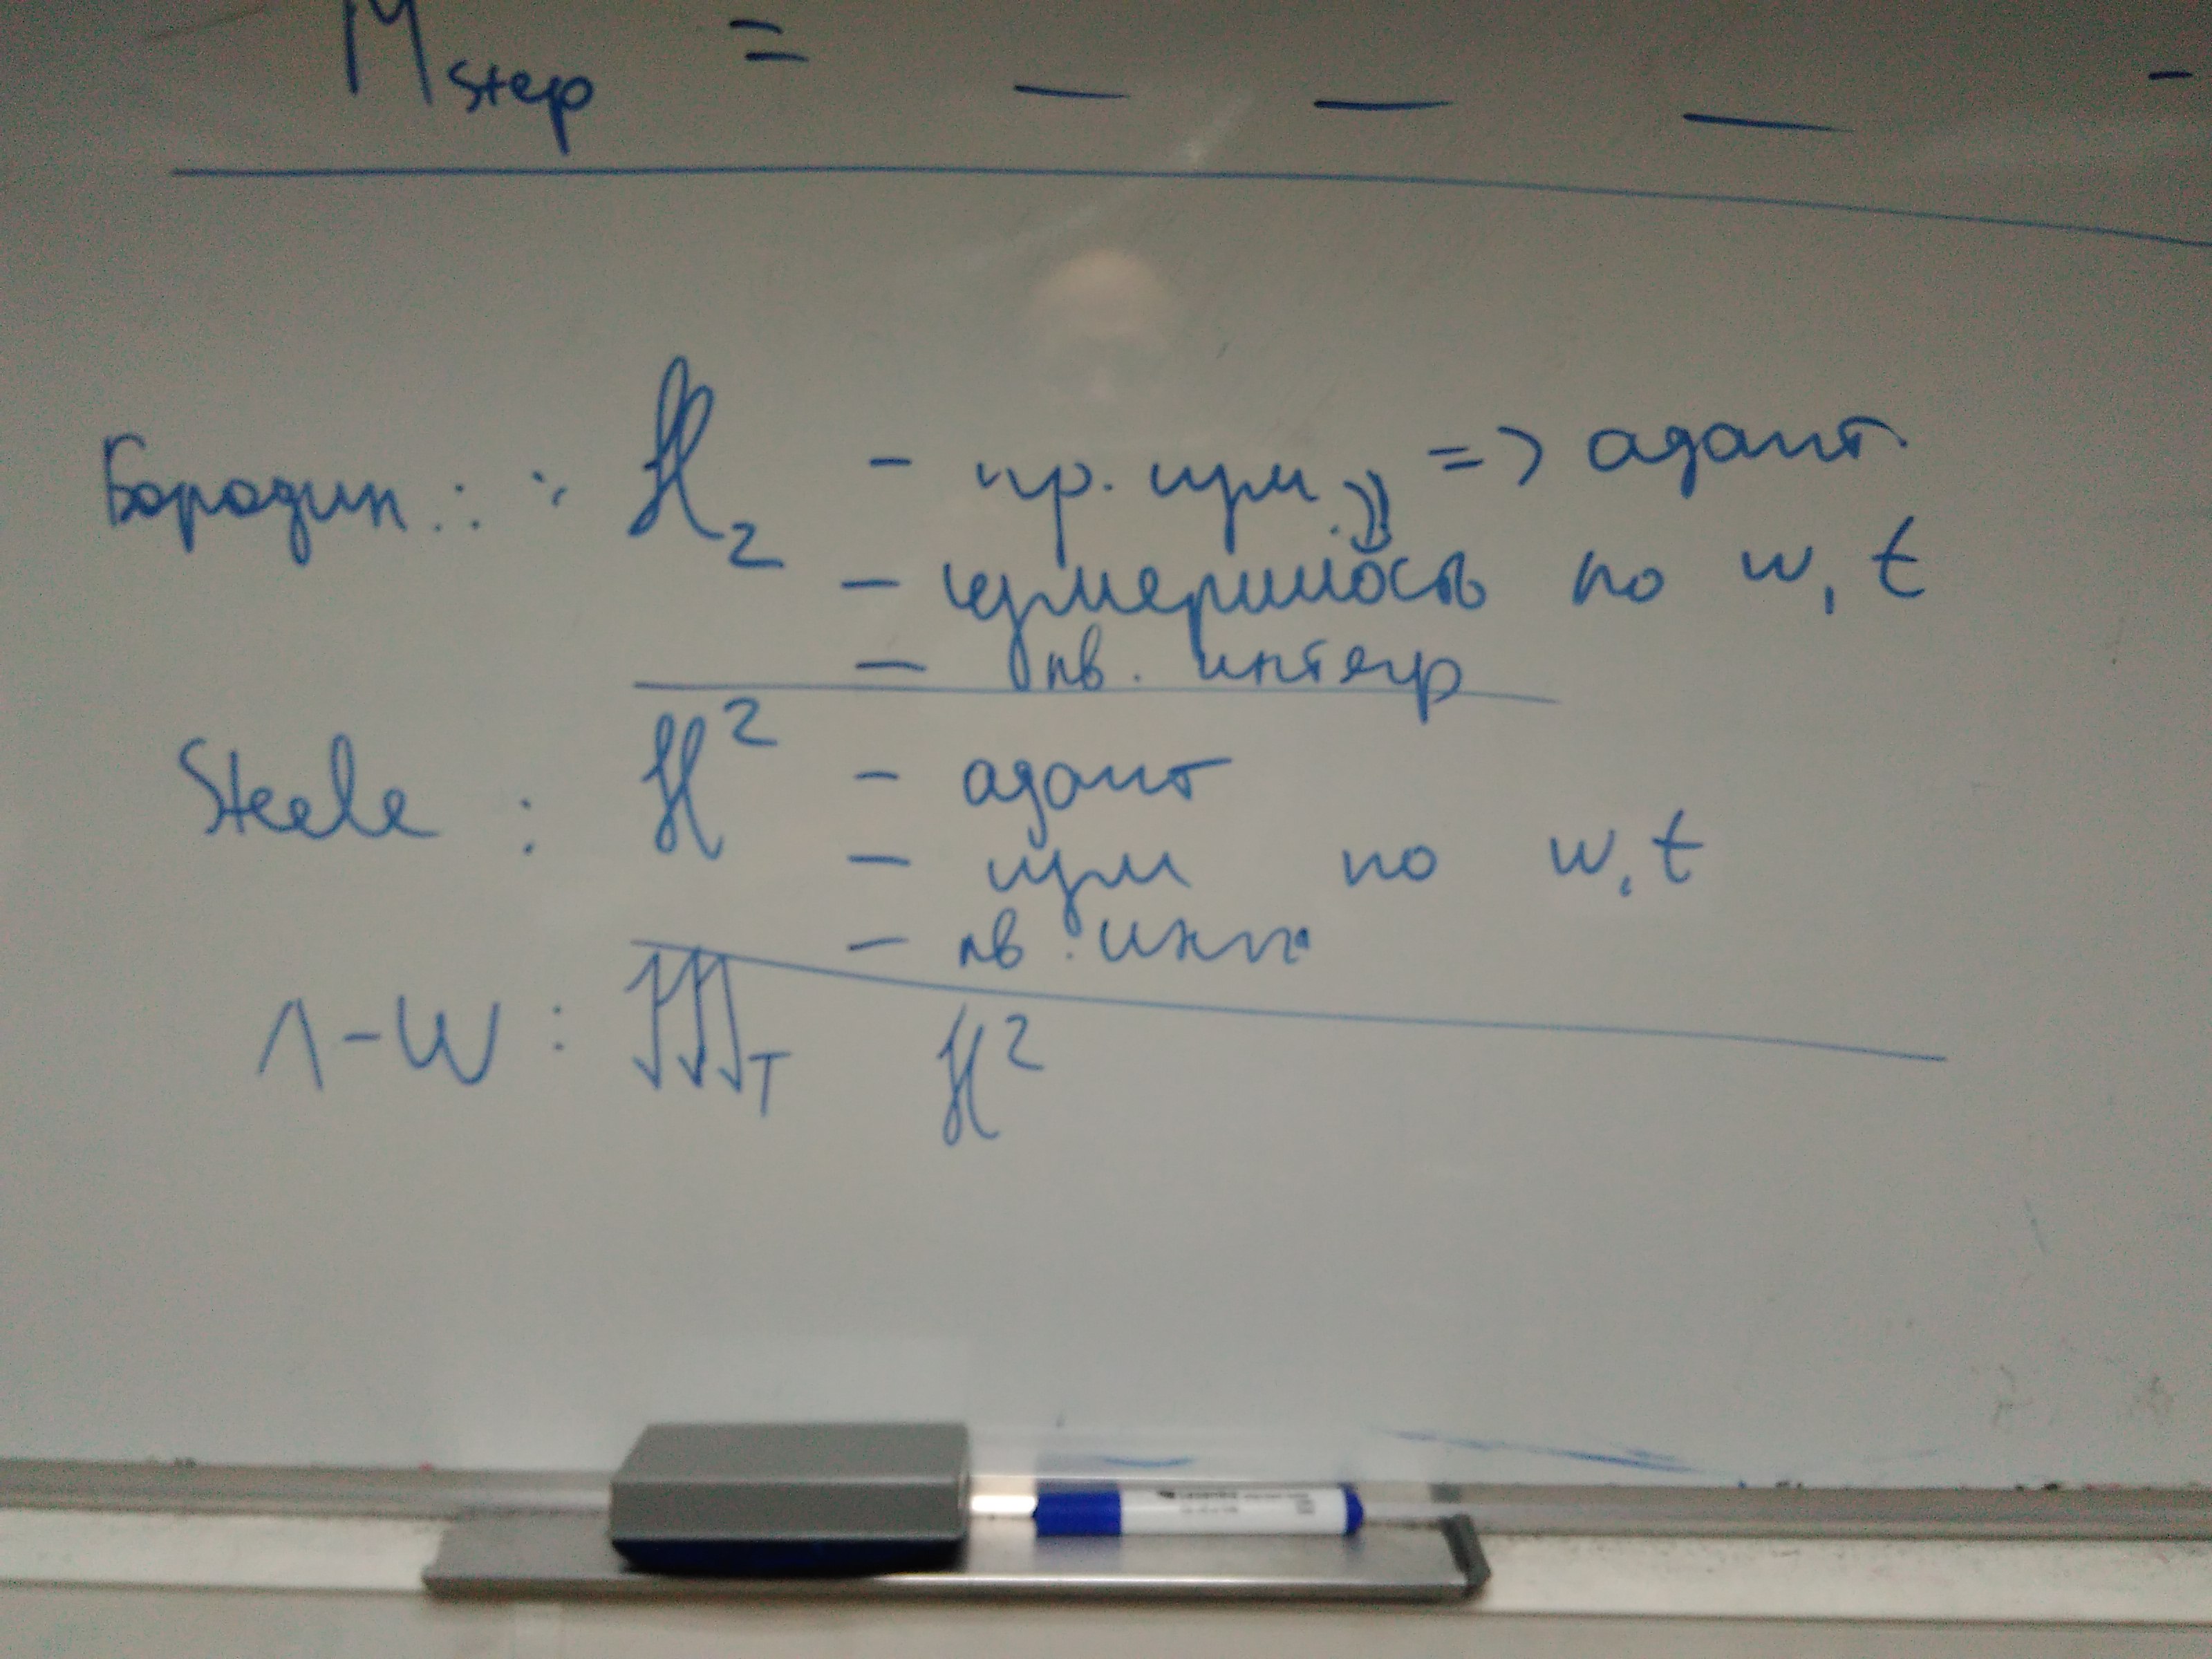 M step = — — — -
Бородин : H₂ - пр. изм. => адапт.
— измеримость по w, t
— кв. интегр
Steele : H² - адапт
— изм по w, t
— кв. инт.
Λ-W : T H²